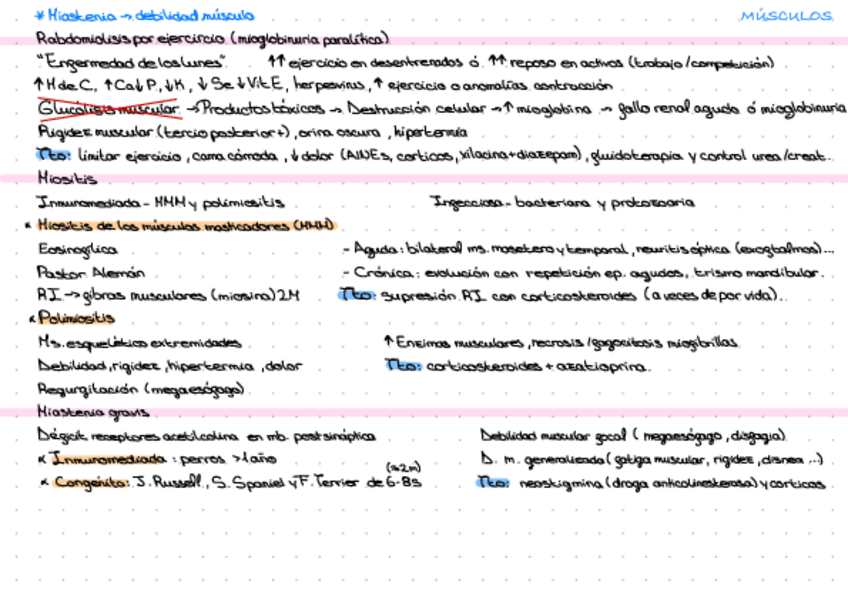 * Miastenia → debilidad músculo
MÚSCULOS
Rabdomiolisis por ejercicio (mioglobinuria paralítica)
"Enfermedad de los lunes" ↑↑ ejercicio en desentrenados ó ↑↑ reposo en activos (trabajo/competición)
↑ H de C, ↑Ca↓P, ↓K, ↓Se↓Vit E, herpesvirus, ↑ ejercicio o anomalías contracción
Glucólisis muscular → Productos tóxicos → Destrucción celular → ↑ mioglobina → fallo renal agudo ó mioglobinuria
Rigidez muscular (tercio posterior +), orina oscura, hipertermia
Tto: limitar ejercicio, cama cómoda, ↓ dolor (AINEs, corticos, xilacina+diazepam), fluidoterapia y control urea/creat..
Miositis
Inmunomediada - MMM y polimiositis
Infecciosa - bacteriana y protozoaria
* Miositis de los músculos masticadores (MMM)
Eosinofílica - Aguda: bilateral ms. masetero y temporal, neuritis óptica (exoftalmos)...
Pastor Alemán - Crónica: evolución con repetición ep. agudos, trismo mandibular.
RI → fibras musculares (miosina) 2M Tto: supresión RI con corticosteroides (a veces de por vida).
* Polimiositis
Ms. esquelético extremidades ↑ Enzimas musculares, necrosis/fagocitosis miofibrillas
Debilidad, rigidez, hipertermia, dolor Tto: corticosteroides + azatioprina.
Regurgitación (megaesófago)
Miastenia gravis
Déficit receptores acetilcolina en mb. postsináptica Debilidad muscular focal (megaesófago, disfagia)
* Inmunomediada: perros >1 año D. m. generalizada (fatiga muscular, rigidez, disnea ...)
(≈2m)
* Congénita: J. Russell, S. Spaniel y F. Terrier de 6-8s Tto: neostigmina (droga anticolinesterasa) y corticos